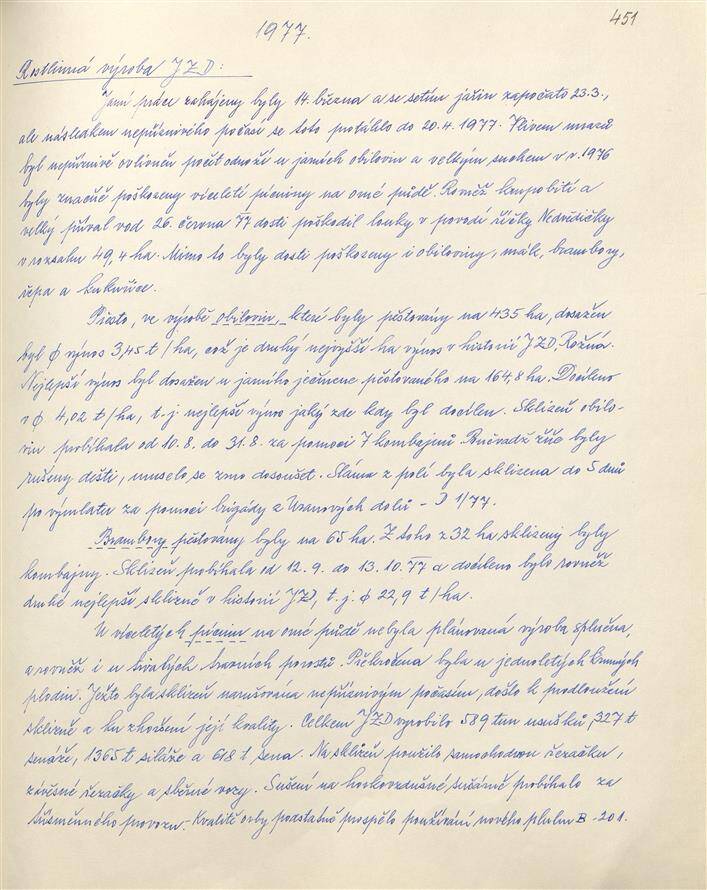 451
1977.
Rostlinná výroba JZD:
Jarní práce zahájeny byly 14. března a se setím jařin započato 23.3.,
ale následkem nepříznivého počasí se toto protáhlo do 20.4.1977. Vlivem mrazů
byl nepříznivě ovlivněn počet odnoží u jarních obilovin a velkým suchem v r. 1976
byly značně poškozeny víceleté pícniny na orné půdě. Rovněž krupobití a
velký příval vod 26. června 77 dosti poškodil louky v povodí říčky Nedvědičky
v rozsahu 49,4 ha. Mimo to byly dosti poškozeny i obiloviny, mák, brambory,
řepa a kukuřice.
Přesto, ve výrobě obilovin, které byly pěstovány na 435 ha, dosažen
byl ϕ výnos 3,45 t/ha, což je druhý nejvyšší ha výnos v historii JZD Rožná.
Nejlepší výnos byl dosažen u jarního ječmene pěstovaného na 164,8 ha. Docíleno
ϕ 4,02 t/ha, t.j. nejlepší výnos jaký zde kdy byl docílen. Sklizeň obilo-
vin probíhala od 10.8. do 31.8. za pomoci 7 kombajnů. Poněvadž žně byly
rušeny dešti, muselo se zrno dosoušet. Sláma z polí byla sklizena do 5 dnů
po výmlatu za pomoci brigády z Uranových dolů - D 1/77.
Brambory pěstovány byly na 65 ha. Z toho z 32 ha sklizeny byly
kombajny. Sklizeň probíhala od 12.9. do 13.10.77 a docíleno bylo rovněž
druhé nejlepší sklizně v historii JZD, t.j. ϕ 22,9 t/ha.
U víceletých pícnin na orné půdě nebyla plánovaná výroba splněna,
a rovněž i u trvalých travních porostů. Překročena byla u jednoletých krmných
plodin. Ježto byla sklizeň narušována nepříznivým počasím, došlo k prodloužení
sklizně a ku zhoršení její kvality. Celkem JZD vyrobilo 589 tun úsušků, 327 t
senáže, 1365 t siláže a 618 t sena. Na sklizeň použilo samochodnou řezačku,
závěsné řezačky a sběrné vozy. Sušení na horkovzdušné sušárně probíhalo za
třísměnného provozu. Kvalitě orby podstatně prospělo používání nového pluhu B-201.